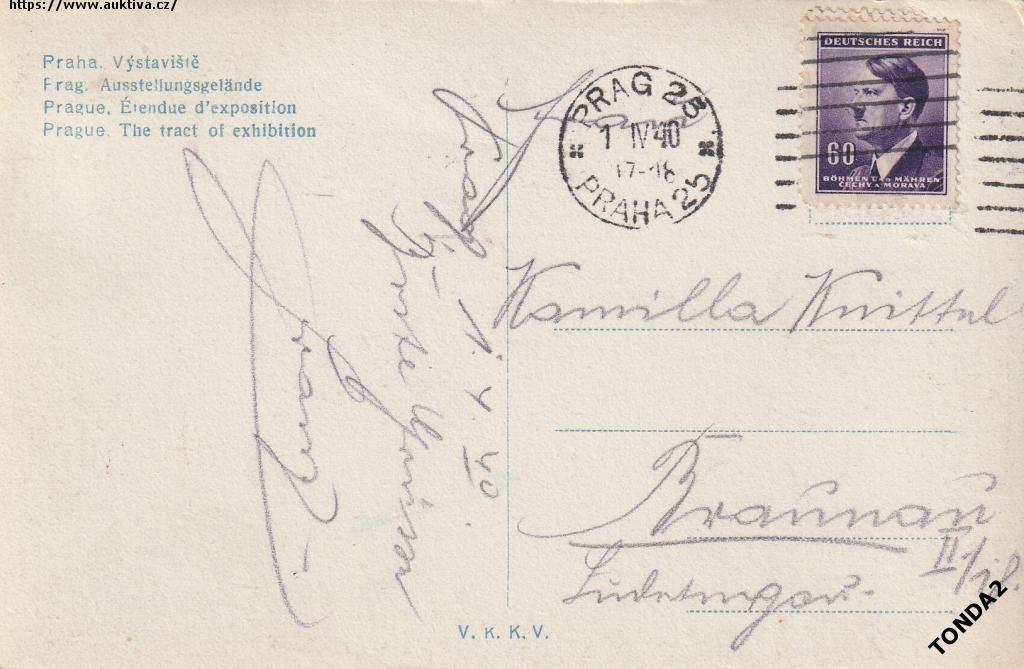 https://www.auktiva.cz/
Praha. Výstaviště
Prag. Ausstellungsgelände
Prague, Étendue d'exposition
Prague. The tract of exhibition
PRAG 25
1 IV 40
17-18
PRAHA 25
DEUTSCHES REICH
60
BÖHMEN UND MÄHREN
ČECHY A MORAVA
1. 4. 40
Kamilla Knittel
Braunau
II/
Sudetengau
V. K. K. V.
TONDA2